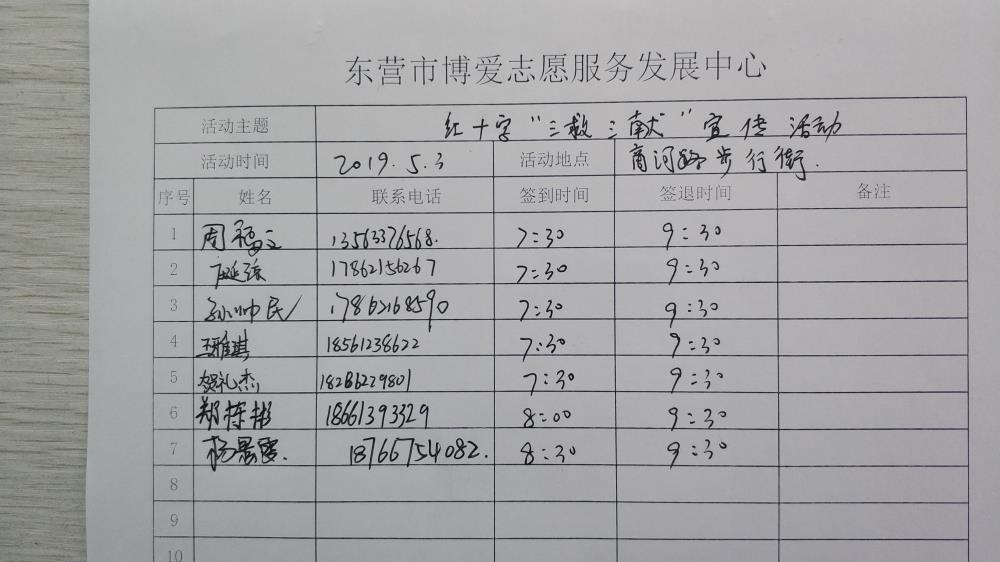 东营市博爱志愿服务发展中心
活动主题 红十字“三救三献”宣传活动
活动时间 2019.5.3 活动地点 商河路步行街.
序号 姓名 联系电话 签到时间 签退时间 备注
1 周福 13563376568. 7:30 9:30
2 延强 17862156267 7:30 9:30
3 孙帅民 17862168590 7:30 9:30
4 王雅琪 18561238622 7:30 9:30
5 贺礼杰 18286229801 7:30 9:30
6 郑栋彬 18661393329 8:00 9:30
7 杨景霞. 18766754082. 8:30 9:30
8
9
10